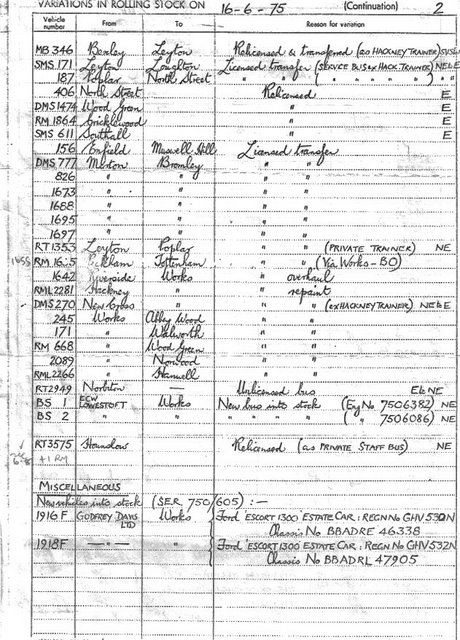 VARIATIONS IN ROLLING STOCK ON 16-6-75 (Continuation) 2
Vehicle number From To Reason for variation
MB 346 Bexley Leyton Relicensed & transferred (as HACKNEY TRAINER)
SMS 171 Leyton Loughton Licensed transfer (SERVICE BUS ex HACK. TRAINER) NE&E
187 Poplar North Street " " ( " " " " ) " "
406 North Street Relicensed E
DMS 1474 Wood Green " E
RM 1864 Cricklewood " E
SMS 611 Southall " E
156 Enfield Muswell Hill Licensed transfer
DMS 777 Merton Bromley " "
826 " " " "
1673 " " " "
1688 " " " "
1695 " " " "
1697 " " " "
RT 1353 Leyton Poplar " " (PRIVATE TRAINER) NE
RM Peckham Tottenham " " (Via Works - BO)
1642 Riverside Works " overhaul
RML 2281 Hackney " " repaint
DMS 270 New Cross " " " (ex HACKNEY TRAINER) NE&E
245 Works Abbey Wood " "
171 " Walworth " "
RM 668 " Wood Green " "
2089 " Norwood " "
RML 2266 " Hanwell " "
RT 2949 Norbiton — Unlicensed bus E& NE
BS 1 ECW LOWESTOFT Works New bus into stock (Eng No 7506382) NE
BS 2 " " " " " " ( " 7506086) NE
RT 3575 Hounslow Relicensed (as PRIVATE STAFF BUS) NE
+1 RM
MISCELLANEOUS
New vehicles into stock (SER 750/605) :—
1916 F GODFREY DAVIS LTD Works Ford 'ESCORT 1300' ESTATE CAR : REGN No GHV 530N
Chassis No BBADRE 46338
1918F —"— " Ford 'ESCORT 1300' ESTATE CAR : REGN No GHV 532N
Chassis No BBADRL 47905